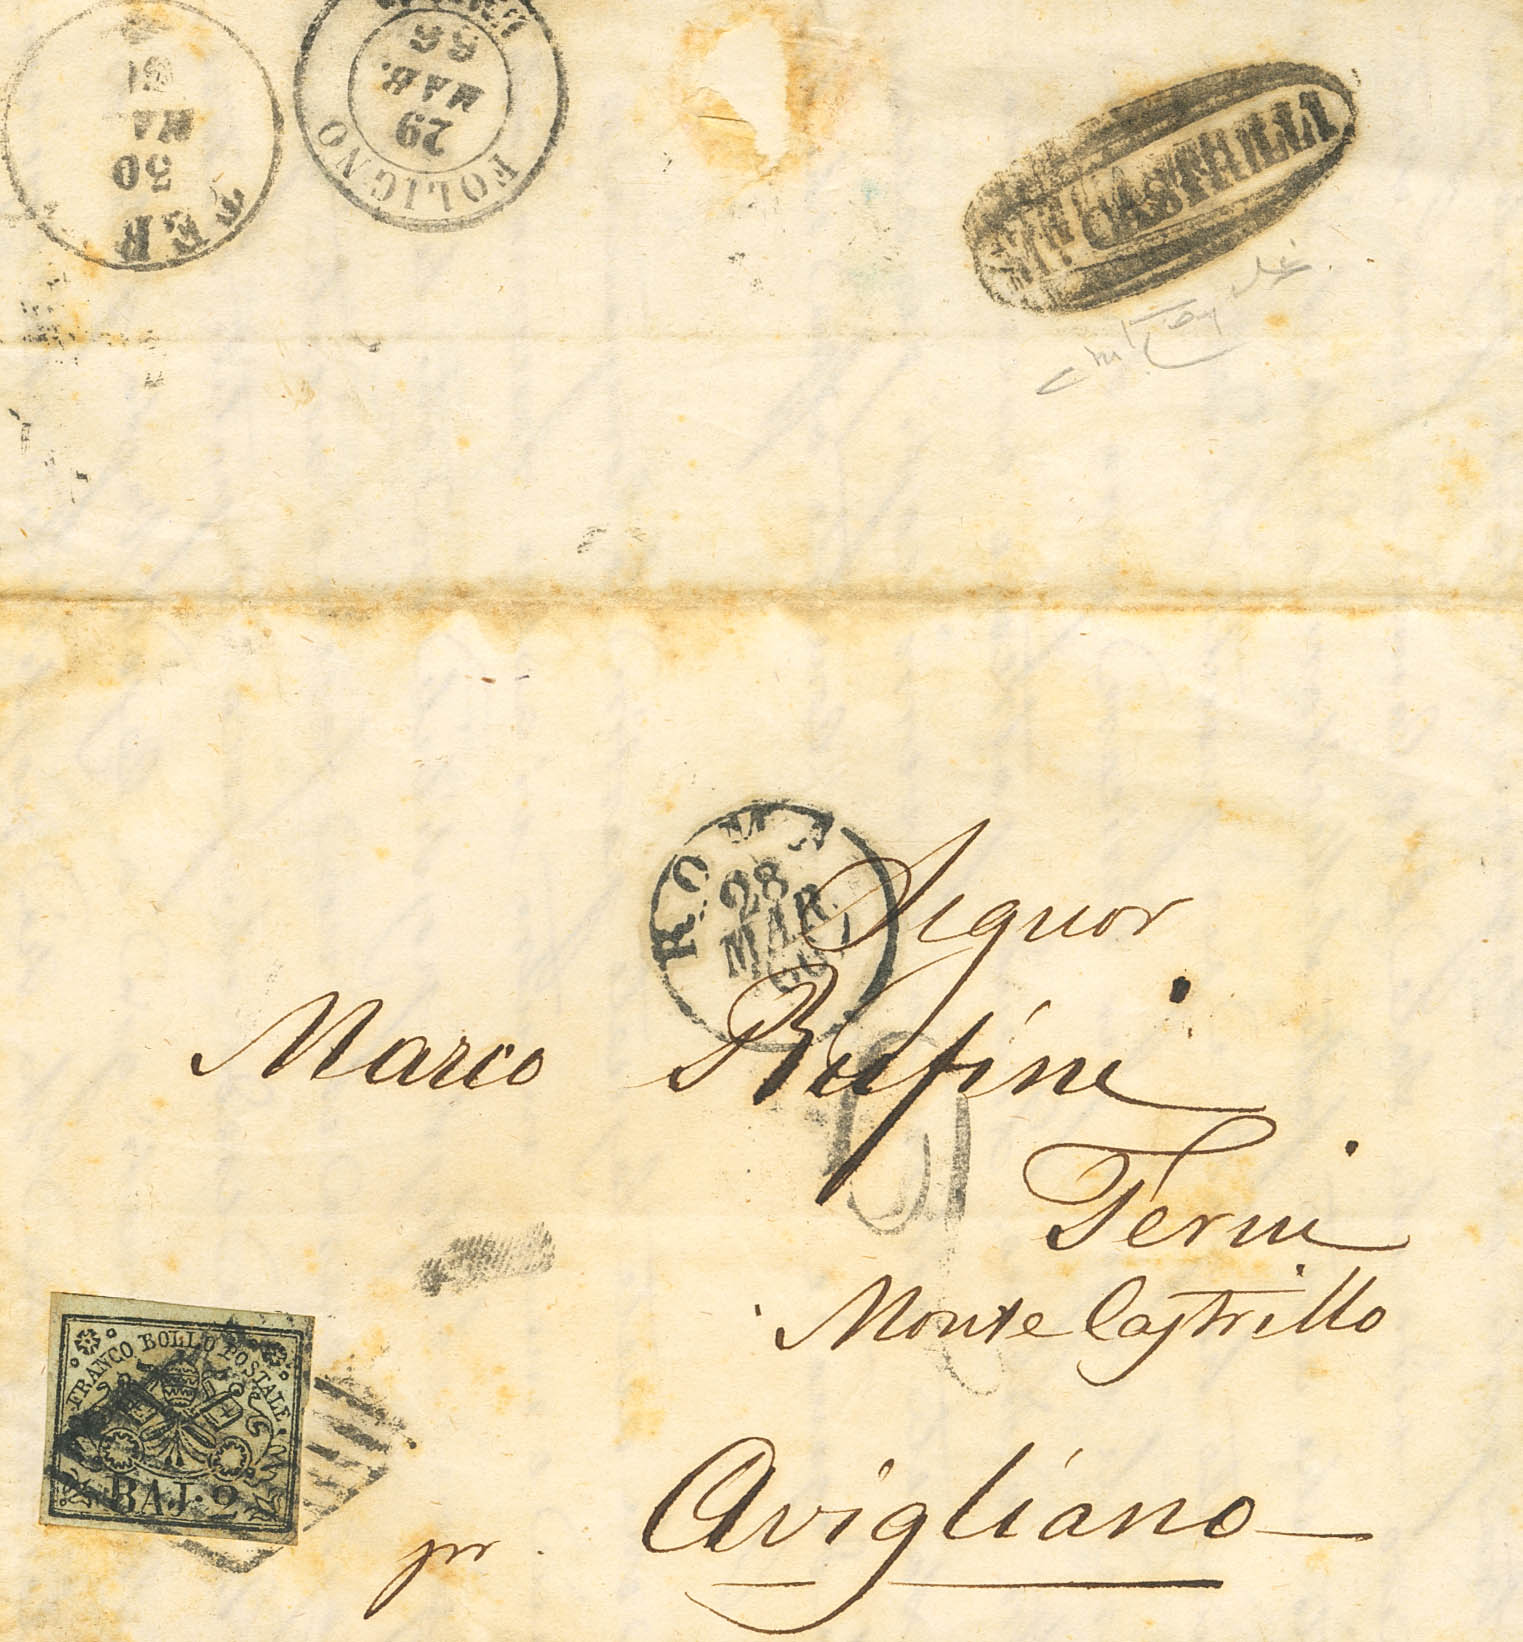 FOLIGNO
29
MAR.
66
TER
30
MA
61
CASTRILLI
ROMA
28
MAR.
Signor
Marco Rufini
Terni
Monte Castrillo
pr. Avigliano
FRANCO BOLLO POSTALE
BAJ. 2